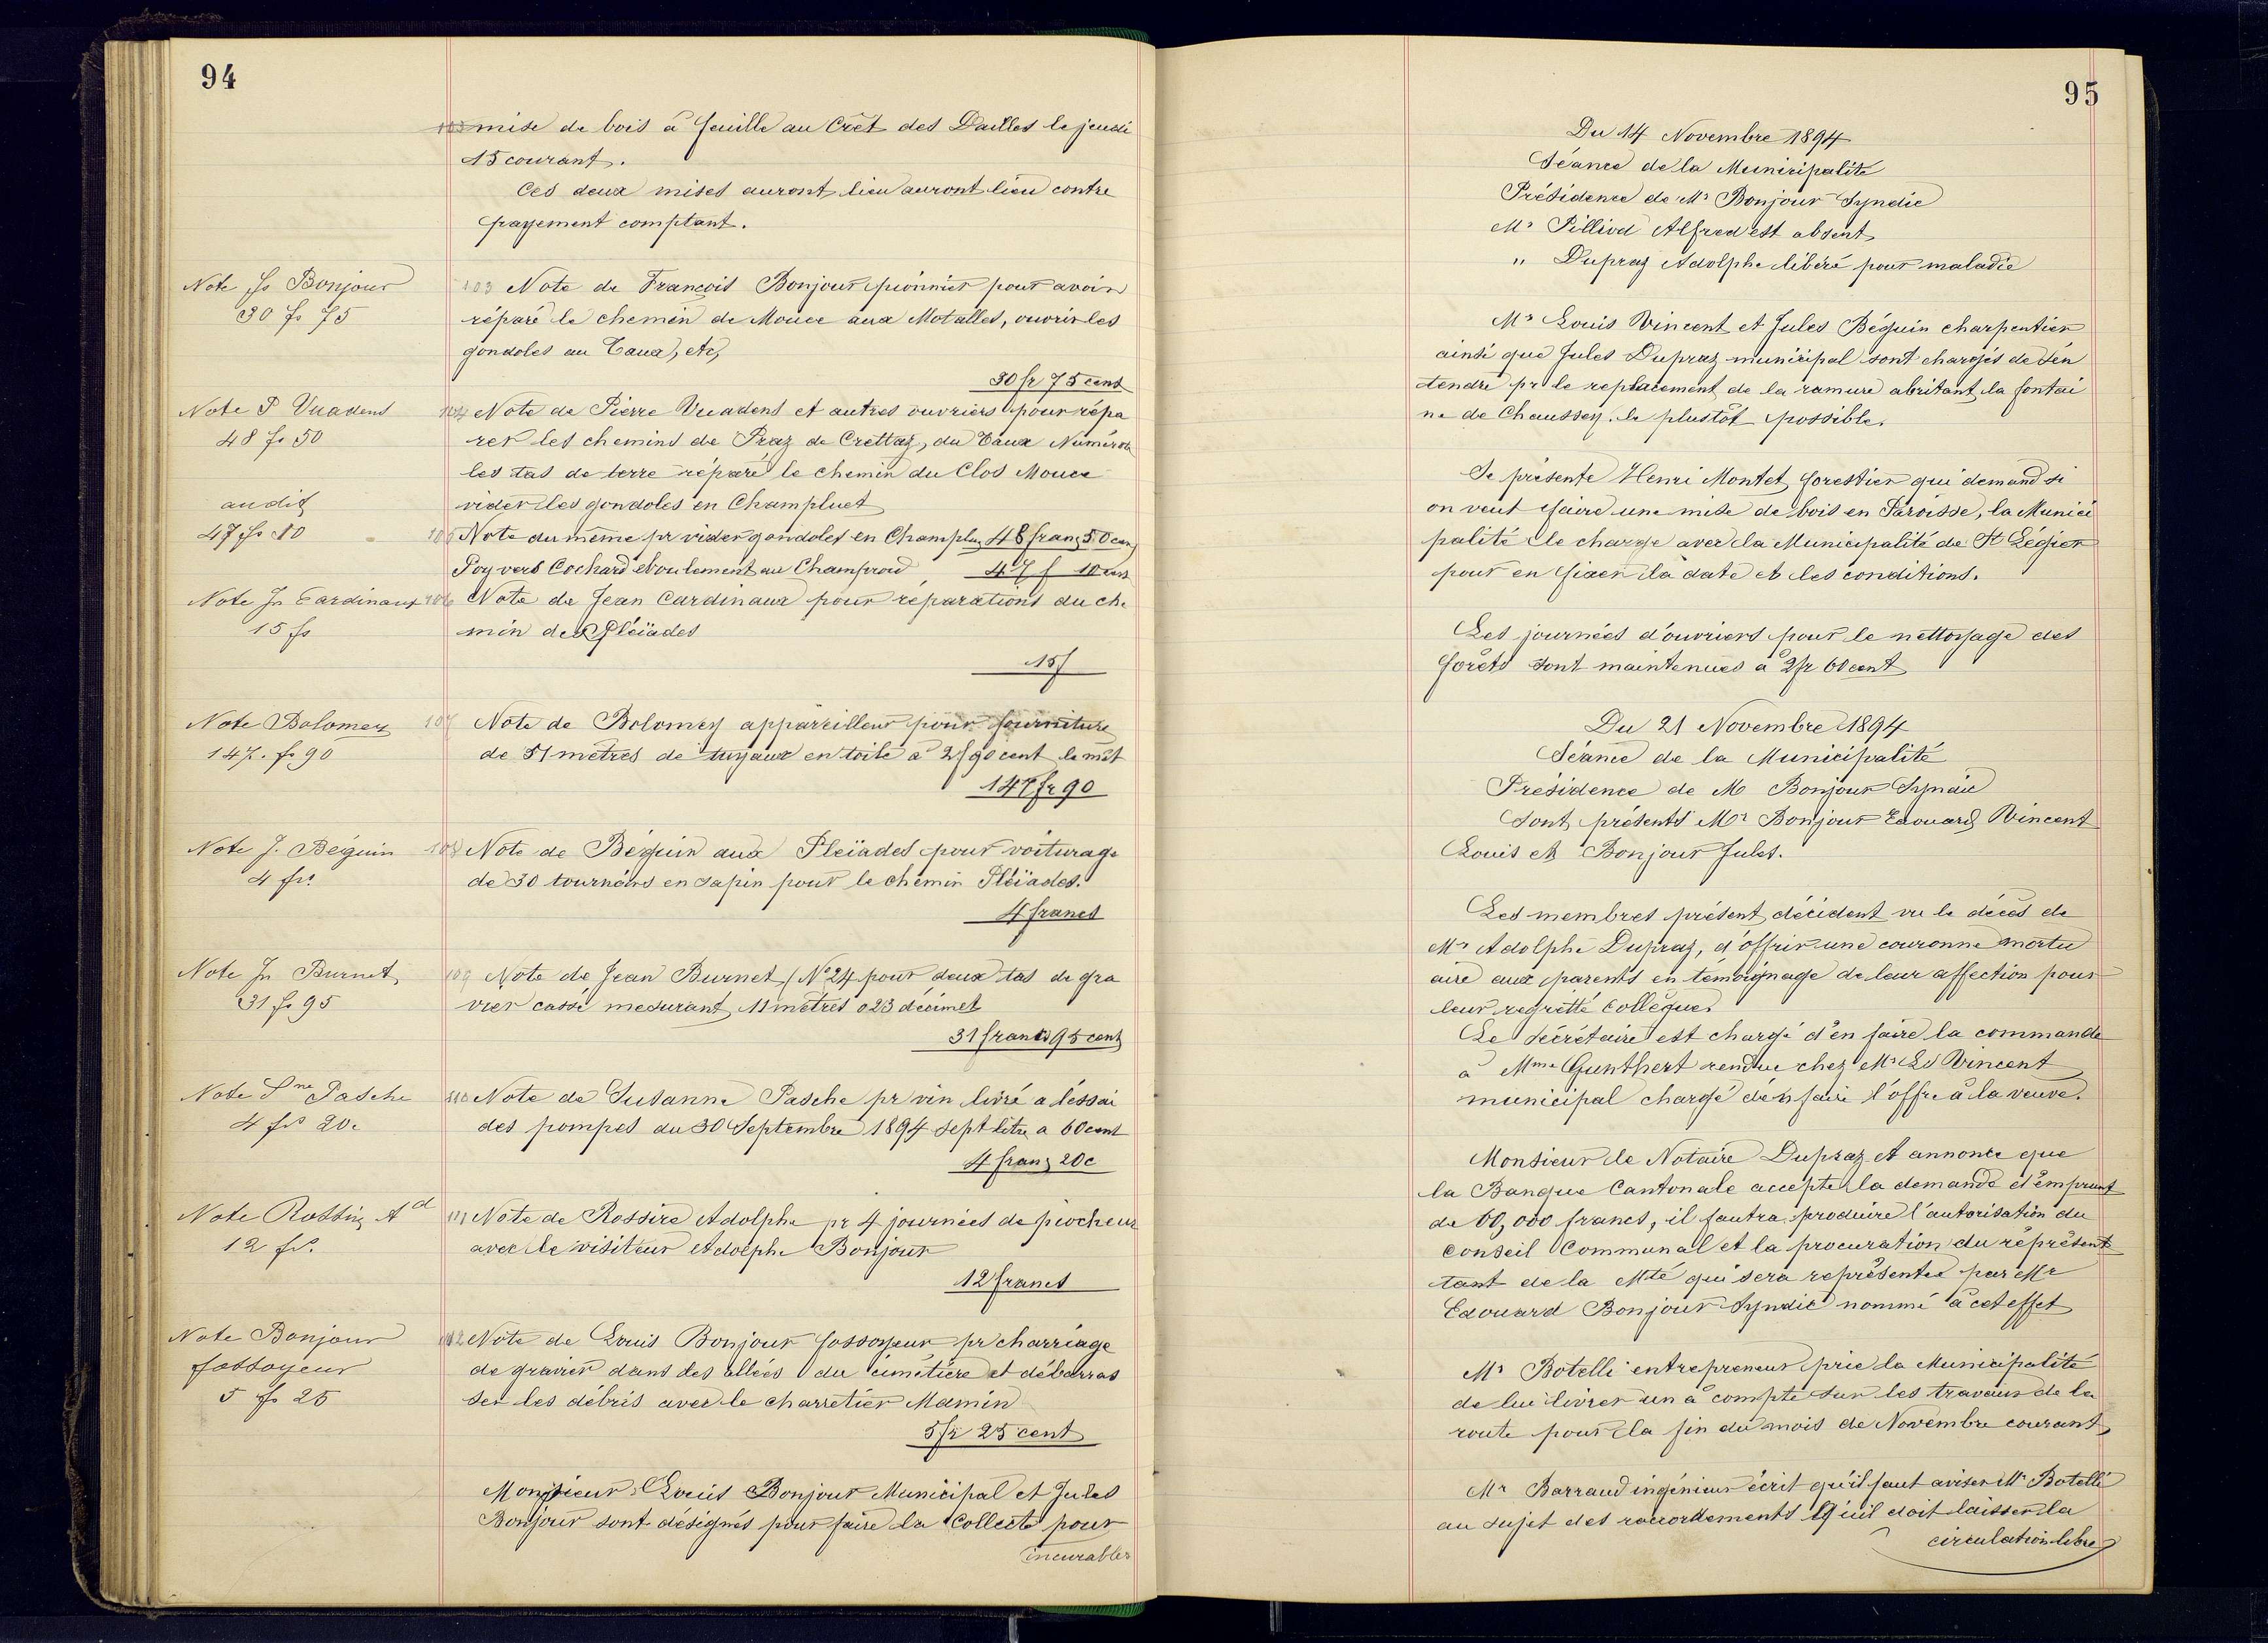 94
mise de bois à feuille au Crêt des Dailles le jeudi
15 courant.
Ces deux mises auront lieu auront lieu contre
payement comptant.
Note fs Bonjour
30 fs 75
103 Note de François Bonjour pionnier pour avoir
réparé le chemin de Mouce aux Motalles, ouvrir les
gondoles au Taux, etc,
30 fr 75 cent
Note P Vuadens
48 fs 50
104 Note de Pierre Vuadens et autres ouvriers pour répa
rer les chemins de Praz de Crettaz, du Taux Numéroter
les tas de terre réparé le chemin du Clos Mouce
vider les gondoles en Champluet
audit
47 fs 10
105 Note du même pr vider gondoles en Champlu 48 fran 50 cen
Poy vers Cochard éboulement au Champroud 47 f 10 cent
Note Jn Cardinaux
15 fs
106 Note de Jean Cardinaux pour réparations du che
min des Pléïades
15 f
Note Bolomey
147. fs 90
107 Note de Bolomey appareilleur pour fourniture
de 51 mètres de tuyaux en toile à 2 f 90 cent le mèt
147 fr 90
Note J. Béguin
4 frs
108 Note de Béguin aux Pleïades pour voiturage
de 30 tournoirs en sapin pour le chemin Pléïades.
4 francs
Note Jn Burnet
31 fs 95
109 Note de Jean Burnet, No 24 pour deux tas de gra
vier cassé mesurant 11 mètres 023 décimet
31 francs 95 cent
Note Sne Pasche
4 frs 20c
110 Note de Susanne Pasche pr vin livré a l'éssai
des pompes du 30 Septembre 1894 sept litre a 60 cent
4 fran 20 c
Note Rossir Ad
12 frs.
111 Note de Rossire Adolphe pr 4 journées de piocheur
avec le visiteur Adolphe Bonjour
12 francs
Note Bonjour
fossoyeur
5 fs 25
112 Note de Louis Bonjour fossoyeur pr charriage
de gravier dans les allées du cimetière et débarras
ser les débris avec le charretier Mamin
5 fr 25 cent
Monsieur Louis Bonjour Municipal et Jules
Bonjour sont désignés pour faire la Collecte pour
incurables
95
Du 14 Novembre 1894
Séance de la Municipalité
Présidence de Mr Bonjour Syndic
Mr Pilliod Alfred est absent
" Dupraz Adolphe libéré pour maladie
Mr Louis Vincent et Jules Béguin charpentier
ainsi que Jules Dupraz municipal sont chargés de s'en
tendre pr le replacement de la ramure abritant la fontai
ne de Chaussey. le plustôt possible.
Se présente Henri Montet forestier qui demand si
on veut faire une mise de bois en Paroisse, la Munici
palité le charge avec la Municipalité de St Légier
pour en fixer la date et les conditions.
Les journées d'ouvriers pour le nettoyage des
forêts sont maintenues à 2 fr 60 cent
Du 21 Novembre 1894
Séance de la Municipalité
Présidence de M Bonjour Syndic
Sont présents Mr Bonjour Edouard Vincent
Louis et Bonjour Jules.
Les membres présent décident vu le décès de
Mr Adolphe Dupraz, d'offrir une couronne mortu
aire aux parents en témoignage de leur affection pour
leur regretté Collègue.
Le Sécrétaire est chargé d'en faire la commande
à Mme Gunthert rendue chez Mr Ls Vincent
municipal chargé d'en faire l'offre à la veuve.
Monsieur le Notaire Dupraz et annonce que
la Banque Cantonale accepte la demande d'emprunt
de 60,000 francs, il faudra produire l'autorisation du
Conseil Communal et la procuration du représent
tant de la Mté qui sera représentée par Mr
Edouard Bonjour Syndic nommé à cet effet
Mr Botelli entrepreneur prie la Municipalité
de lui livrer un à compte sur les travaux de la
route pour la fin du mois de Novembre courant,
Mr Barraud ingénieur écrit qu'il faut aviser Mr Botelli
au sujet des raccordements qu'il doit laisser la
circulation libre